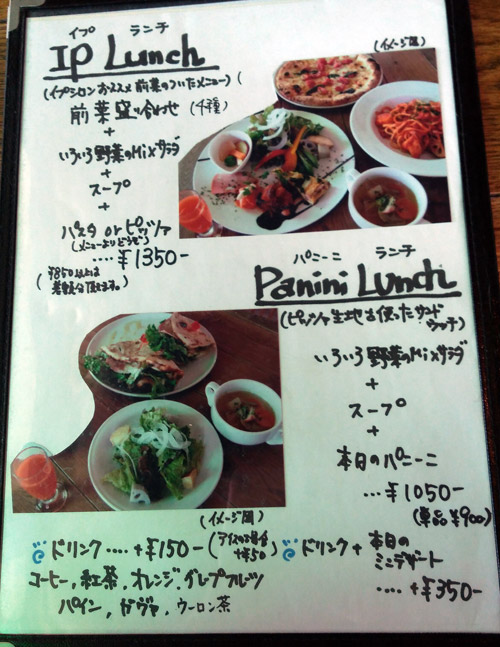 イプ ランチ
IP Lunch
(イメージ図)
(イプシロンおススメ前菜のついたメニュー)
前菜盛り合わせ (4種)
+
いろいろ野菜のMixサラダ
+
スープ
+
パスタ or ピッツァ
(メニューよりどうぞ)
‥‥¥1350-
(¥850以上は
差額分頂きます。)
パニーニ ランチ
Panini Lunch
(ピッツァ生地を使ったサンド
ウィッチ)
いろいろ野菜のMixサラダ
+
スープ
+
本日のパニーニ
‥‥¥1050-
(単品¥900)
(イメージ図)
ドリンク‥‥+¥150- (アイスの場合
+¥50)
コーヒー, 紅茶, オレンジ, グレープフルーツ
パイン, グァヴァ, ウーロン茶
ドリンク + 本日の
ミニデザート
‥‥+¥350-